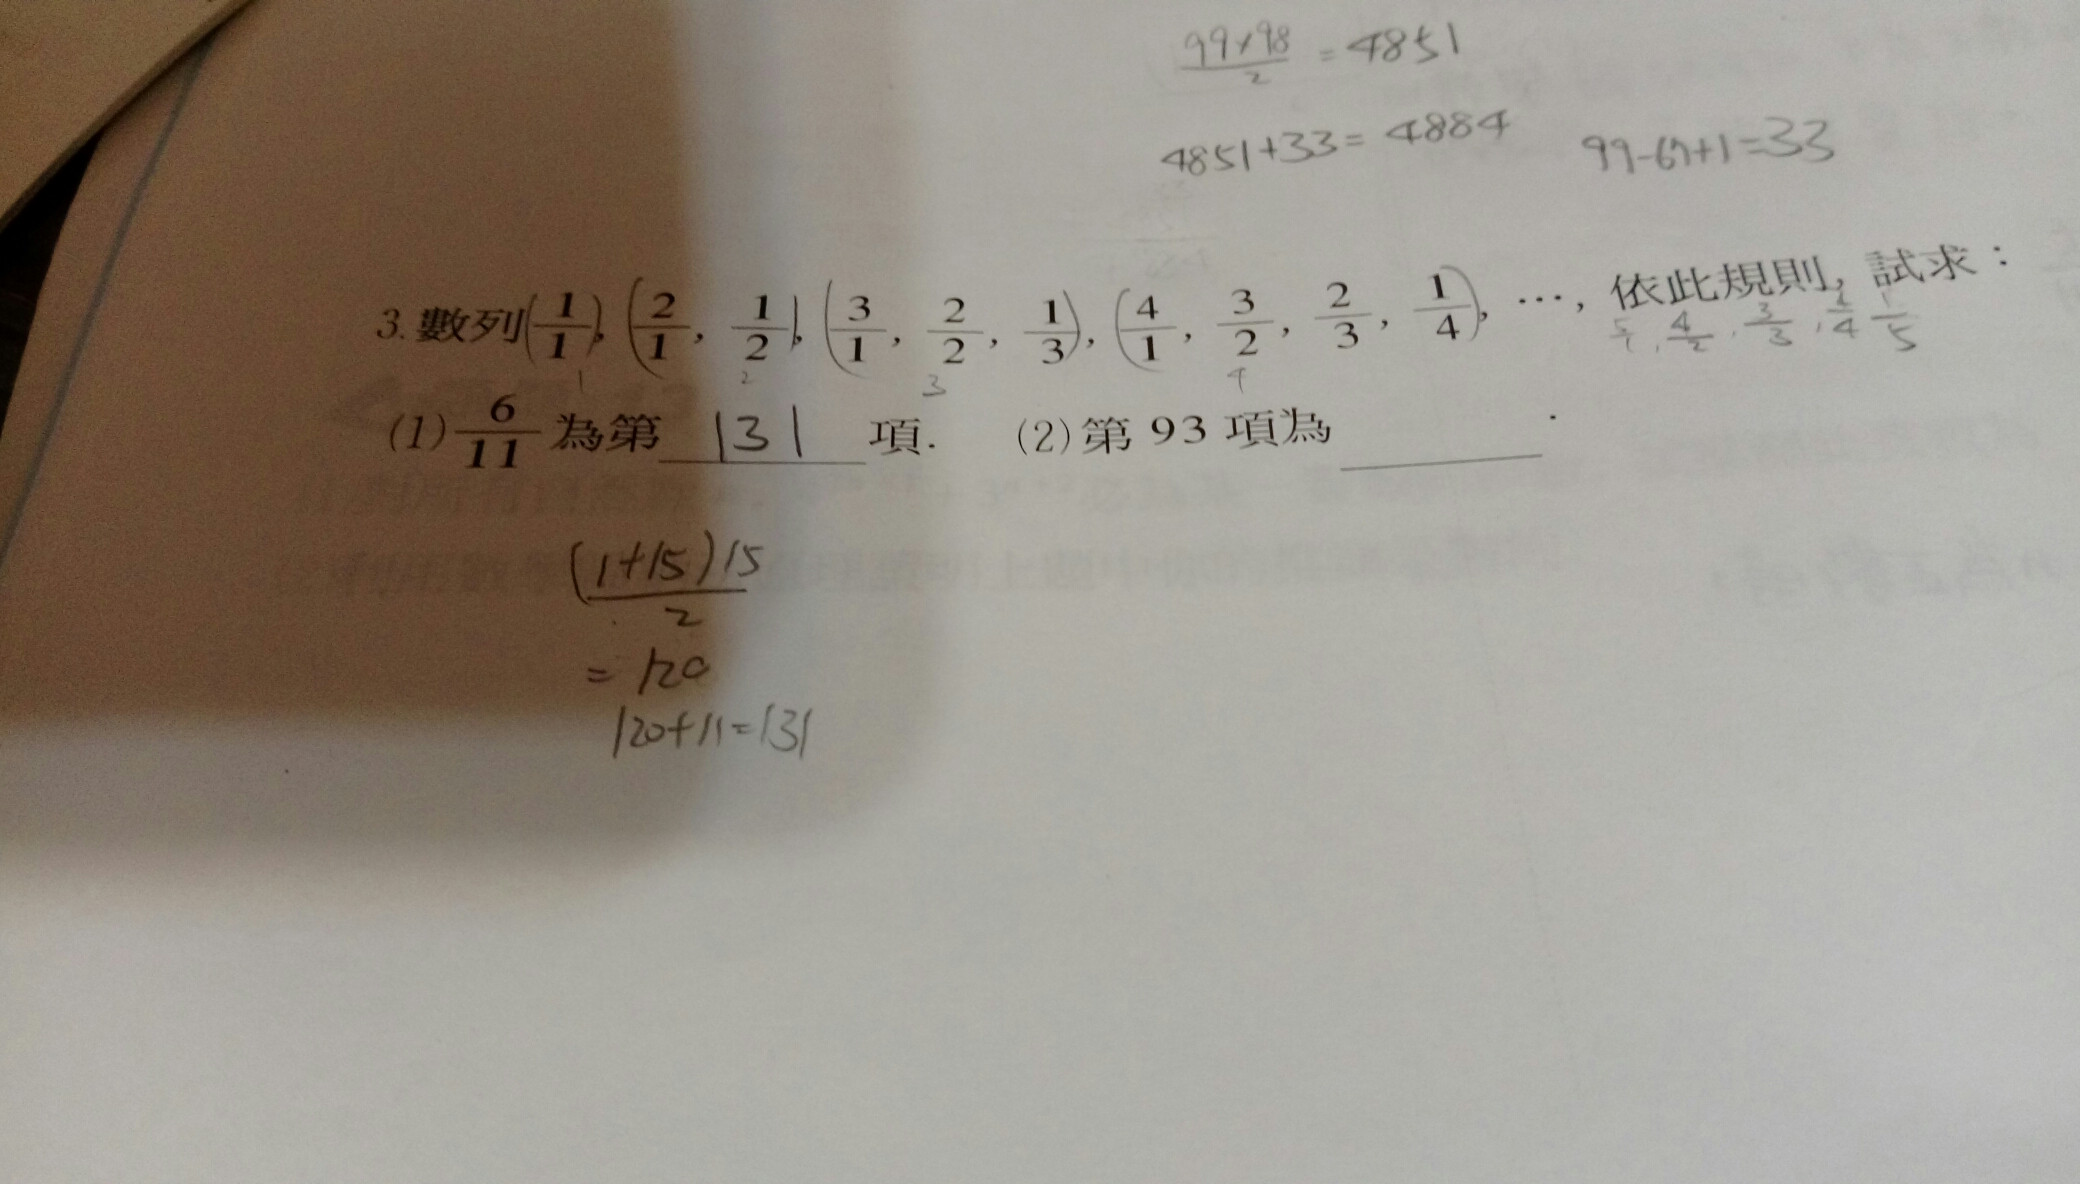 99×98/2 = 4851
4851+33=4884 99-67+1=33
3. 數列(1/1), (2/1, 1/2), (3/1, 2/2, 1/3), (4/1, 3/2, 2/3, 1/4), …, 依此規則, 試求：
1 2 3 4 5/1, 4/2, 3/3, 2/4 1/5
(1) 6/11 為第 131 項. (2) 第 93 項為 .
(1+15)15/2
= 120
120+11=131